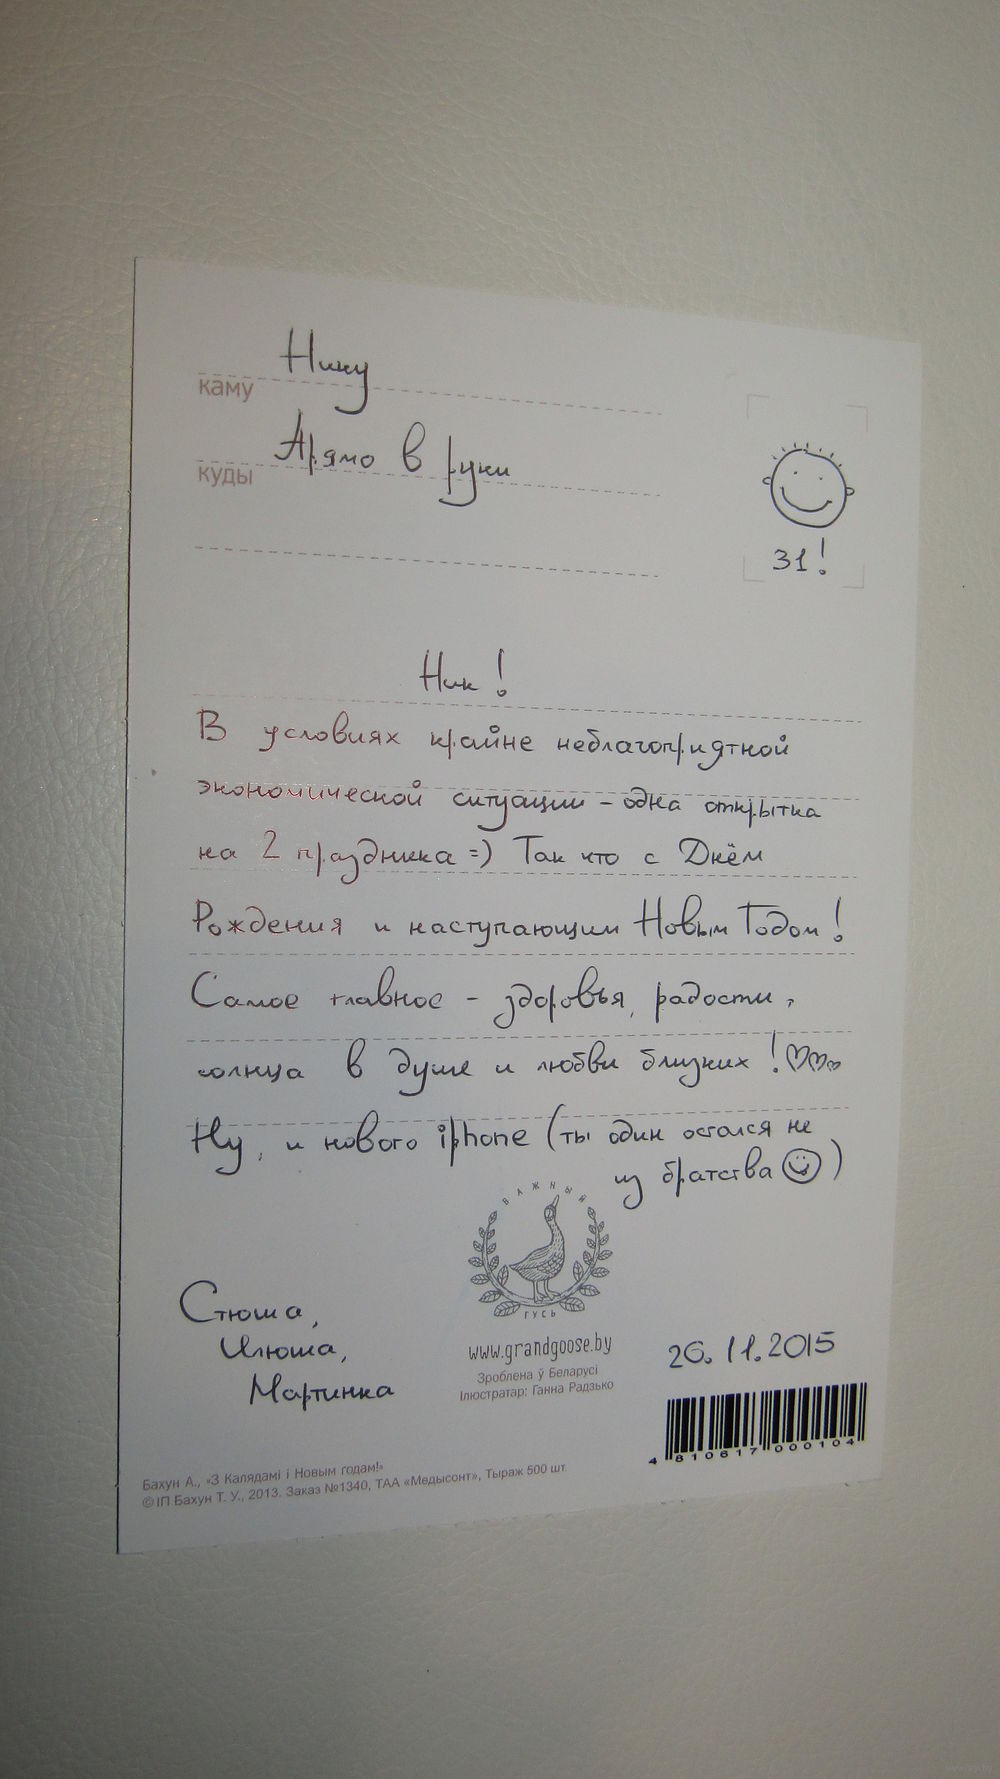 каму Нику
куды Прямо в руки
31!
Ник!
В условиях крайне неблагоприятной
экономической ситуации – одна открытка
на 2 праздника =) Так что с Днём
Рождения и наступающим Новым Годом!
Самое главное - здоровья, радости,
солнца в душе и любви близких!
Ну, и нового iphone (ты один остался не
из братства )
ВАЖНЫЙ
ГУСЬ
Стюша,
Илюша,
Мартинка
www.grandgoose.by
Зроблена ў Беларусі
Ілюстратар: Ганна Радзько
26.11.2015
4 810617 000104
Бахун А., «З Калядамі і Новым годам!»
© ІП Бахун Т. У., 2013. Заказ №1340, ТАА «Медысонт», Тыраж 500 шт